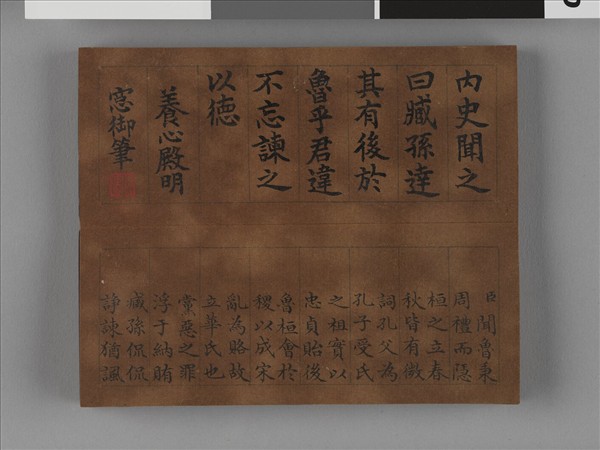 内史聞之
曰臧孫達
其有後於
魯乎君違
不忘諫之
以徳
養心殿明
窓御筆
臣聞魯秉
周禮而隠
桓之立春
秋皆有微
詞孔父為
孔子受氏
之祖實以
忠貞貽後
魯桓會於
稷以成宋
亂為賂故
立華氏也
黨惡之罪
浮于納賄
臧孫侃侃
諍諫猶諷